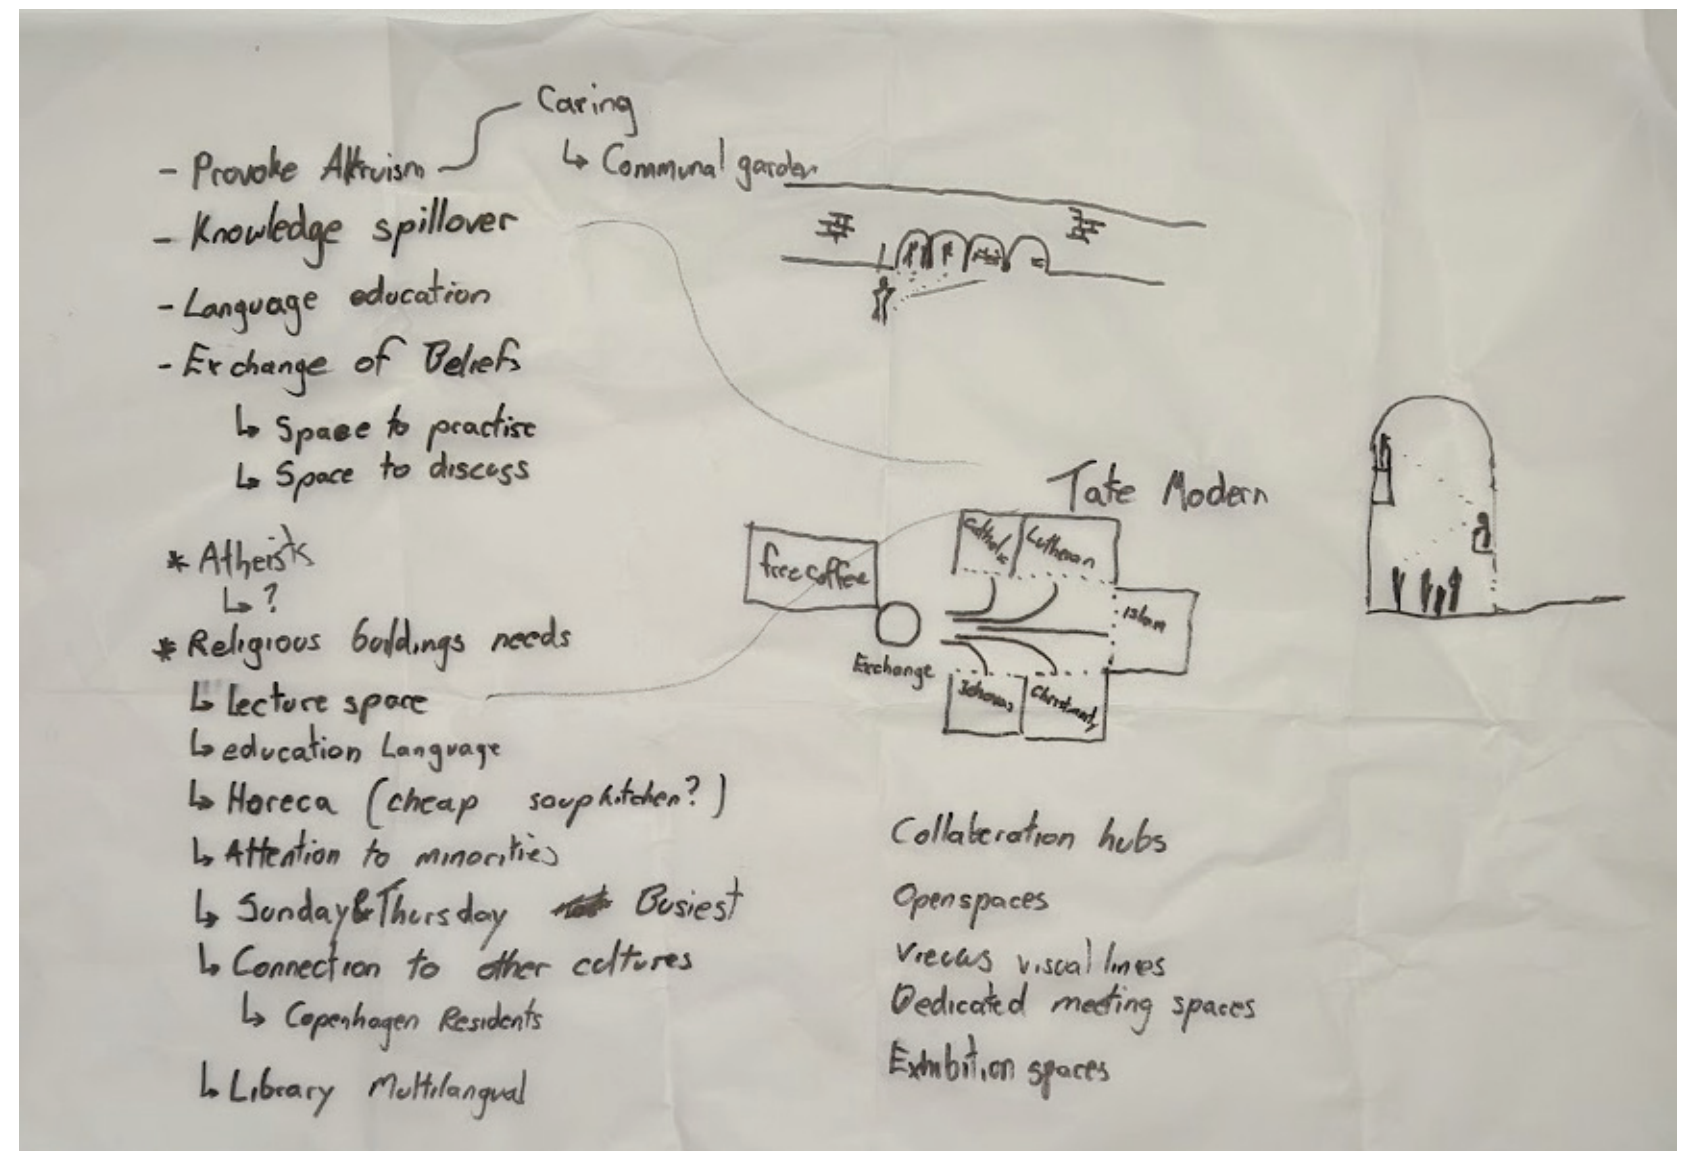 Caring
- Provoke Altruism
↳ Communal garden
- Knowledge spillover
- Language education
- Exchange of Beliefs
↳ Space to practise
↳ Space to discuss
* Atheists
↳ ?
* Religious buildings needs
↳ Lecture space
↳ education Language
↳ Horeca (cheap soupkitchen?)
↳ Attention to minorities
↳ Sunday & Thursday Busiest
↳ Connection to other cultures
↳ Copenhagen Residents
↳ Library Multilangual
Tate Modern
free coffee
Catholic
Lutheran
Islam
Exchange
Christianity
Collaberation hubs
Open spaces
Views visual lines
Dedicated meeting spaces
Exhibition spaces